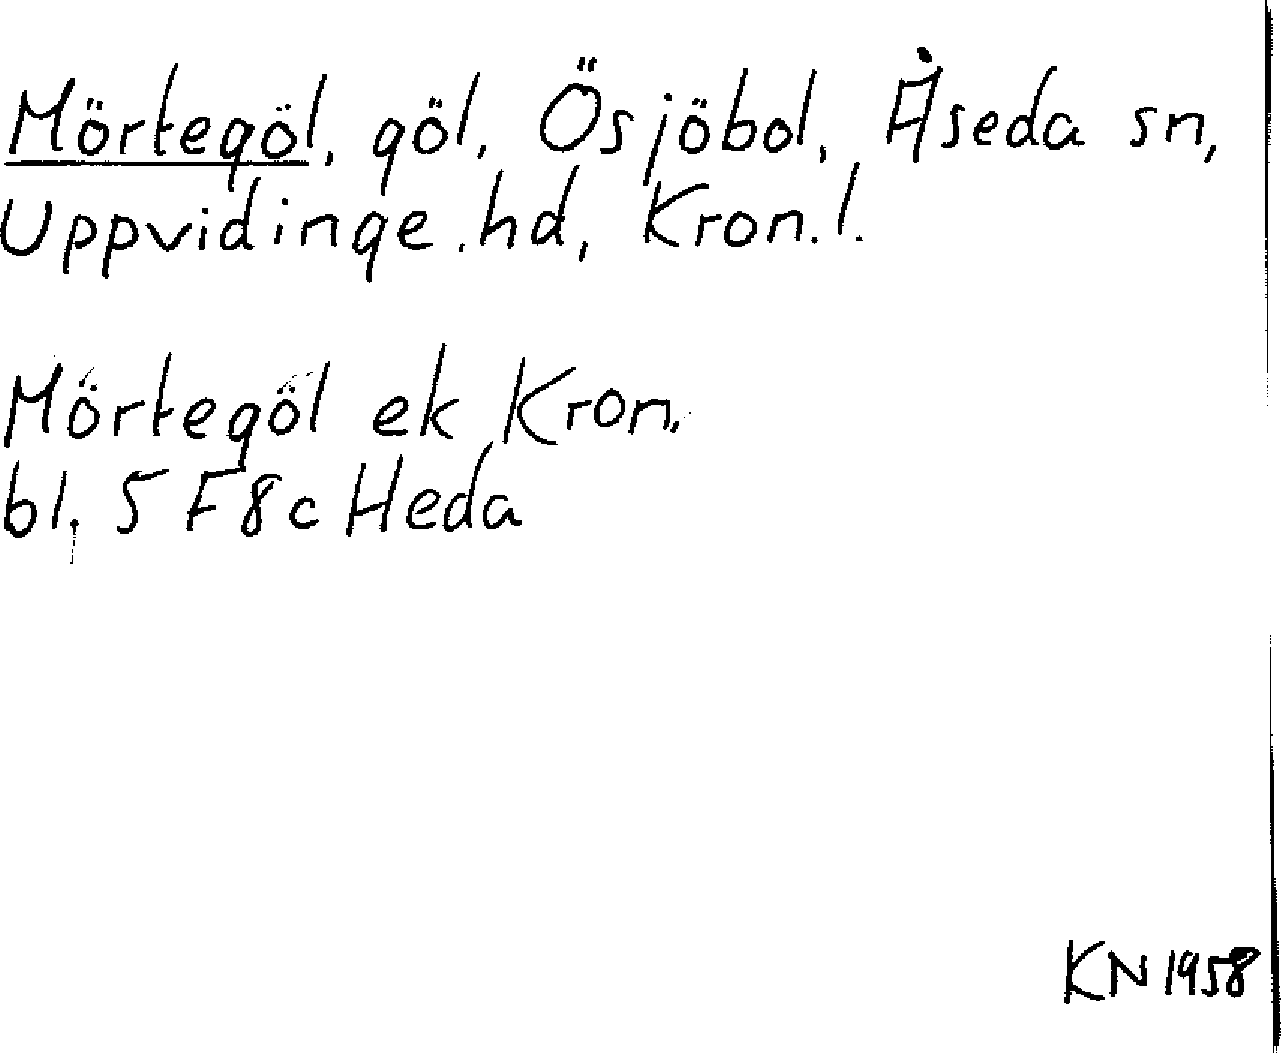 Mörtegöl, göl, Ösjöbol, Åseda sn,
Uppvidinge.hd, Kron.l.
Mörtegöl ek Kron.
bl. 5 F 8 c Heda
KN 1958